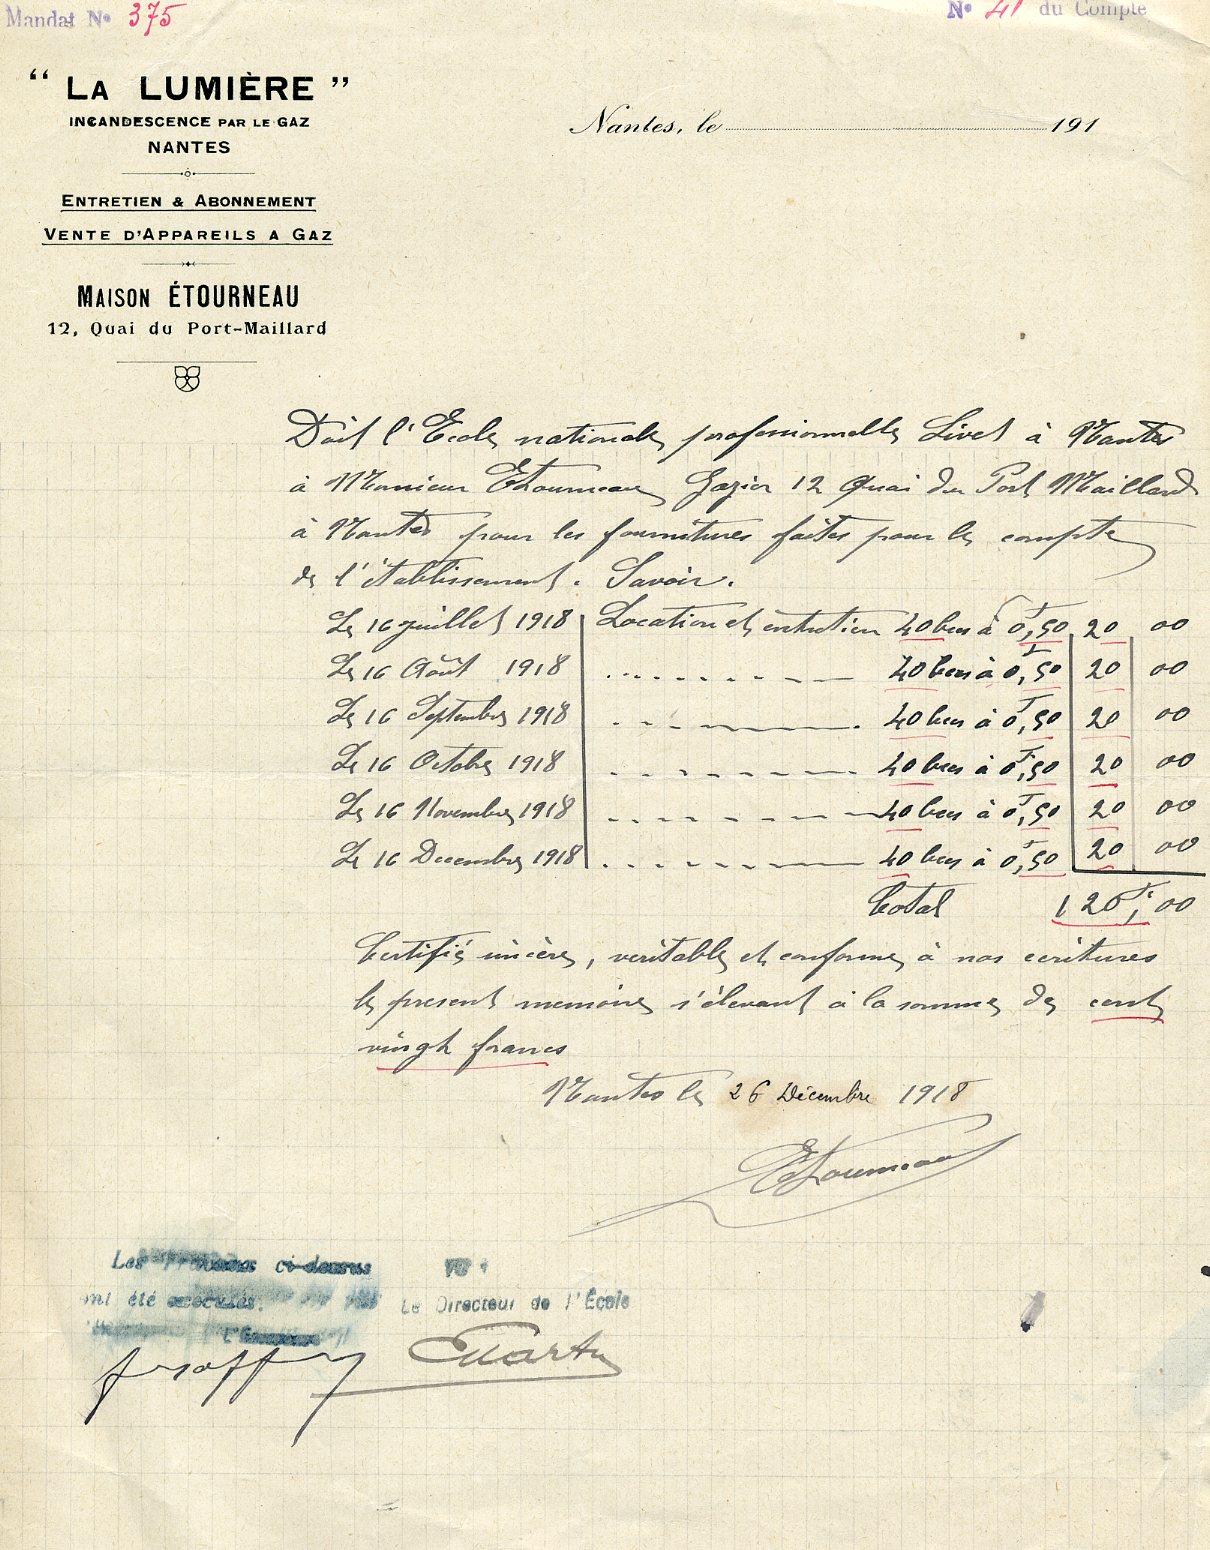 Mandat No 375
No 41 du Compte
“ LA LUMIÈRE ”
INCANDESCENCE PAR LE GAZ
NANTES
ENTRETIEN & ABONNEMENT
VENTE D'APPAREILS A GAZ
MAISON ÉTOURNEAU
12, Quai du Port-Maillard
Nantes, le 191
Doit l'Ecole nationale professionnelle Livet à Nantes
à Monsieur Etourneau Gazier 12 Quai du Port Maillard
à Nantes pour les fournitures faites pour le compte
de l'établissement. Savoir.
Le 16 juillet 1918 Location et entretien 40 becs à 0f,50 20 00
Le 16 Août 1918 40 becs à 0f,50 20 00
Le 16 Septembre 1918 40 becs à 0f,50 20 00
Le 16 Octobre 1918 40 becs à 0f,50 20 00
Le 16 Novembre 1918 40 becs à 0f,50 20 00
Le 16 Decembre 1918 40 becs à 0f,50 20 00
Total 120f,00
Certifié sincère, veritable et conforme à nos ecritures
le present memoire s'élevant à la somme de cent
vingt francs
Nantes le 26 Décembre 1918
Etourneau
Les Travaux ci-dessus
ont été exécutés.
VU :
Le Directeur de l'École